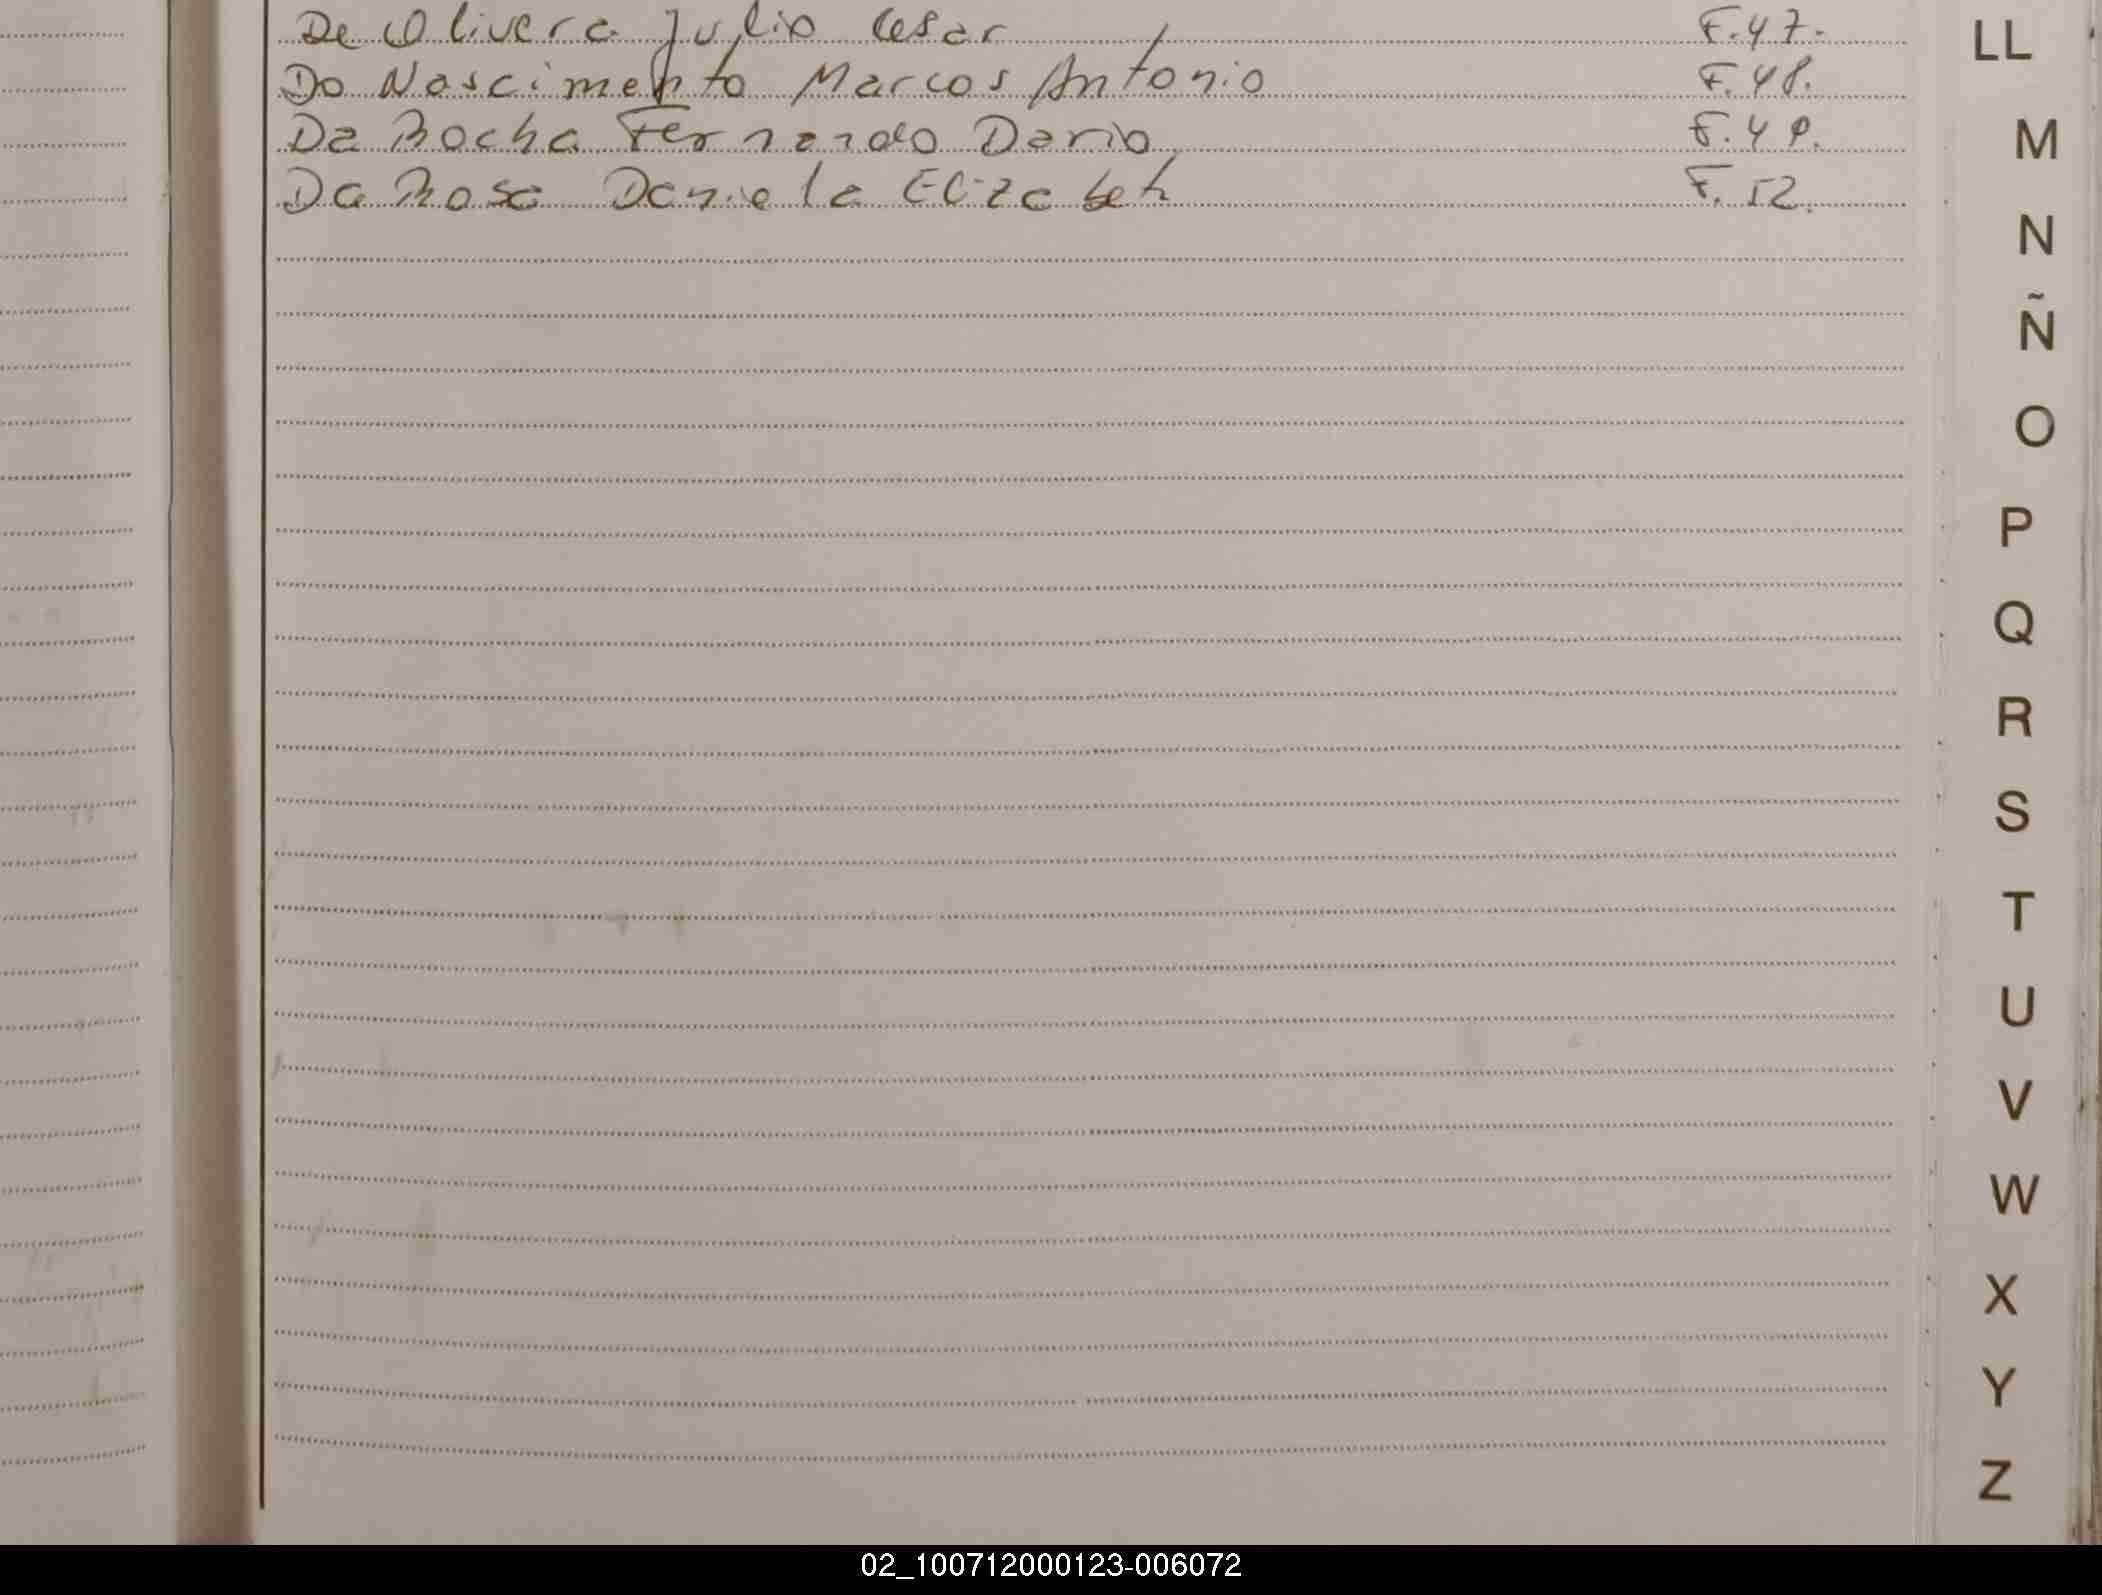 De Olivera Julio Cesar F.47.
Do Nascimento Marcos Antonio F.48.
Da Rocha Fernando Dario F.49.
Da Rosa Daniela Elizabeh F.52.
LL
M
N
Ñ
O
P
Q
R
S
T
U
V
W
X
Y
Z
02_100712000123-006072